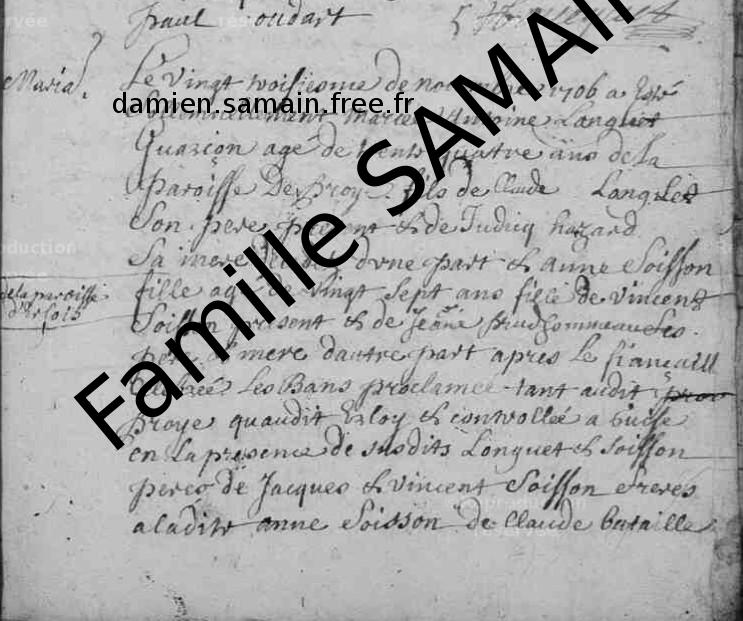 pauloudart
Maria.
Le vingt troisiesme de novembre 1706 a Esté
Sollemnellement mariez Antoine Langlet
Guarçon age de trente quatre ans de la
paroisse De proye fils de Claude Langlet
Son pere present & de Judicq hazard
Sa mere dune part & anne Soisson
de la paroisse
d'Erlois
fille agée de vingt Sept ans fille de vincent
Soisson present & de Jeane prudhommeau Ses
pere & mere dautre part apres Le fiancaill
Les Bans proclamee tant audit prov
proye quaudit Erloy & controllee a Guise
En La presence de susdits Longuet & Soisson
peres de Jacques & vincent Soisson freres
a ladite anne Soisson de Claude bataille
damien.samain.free.fr
Famille SAMAIN